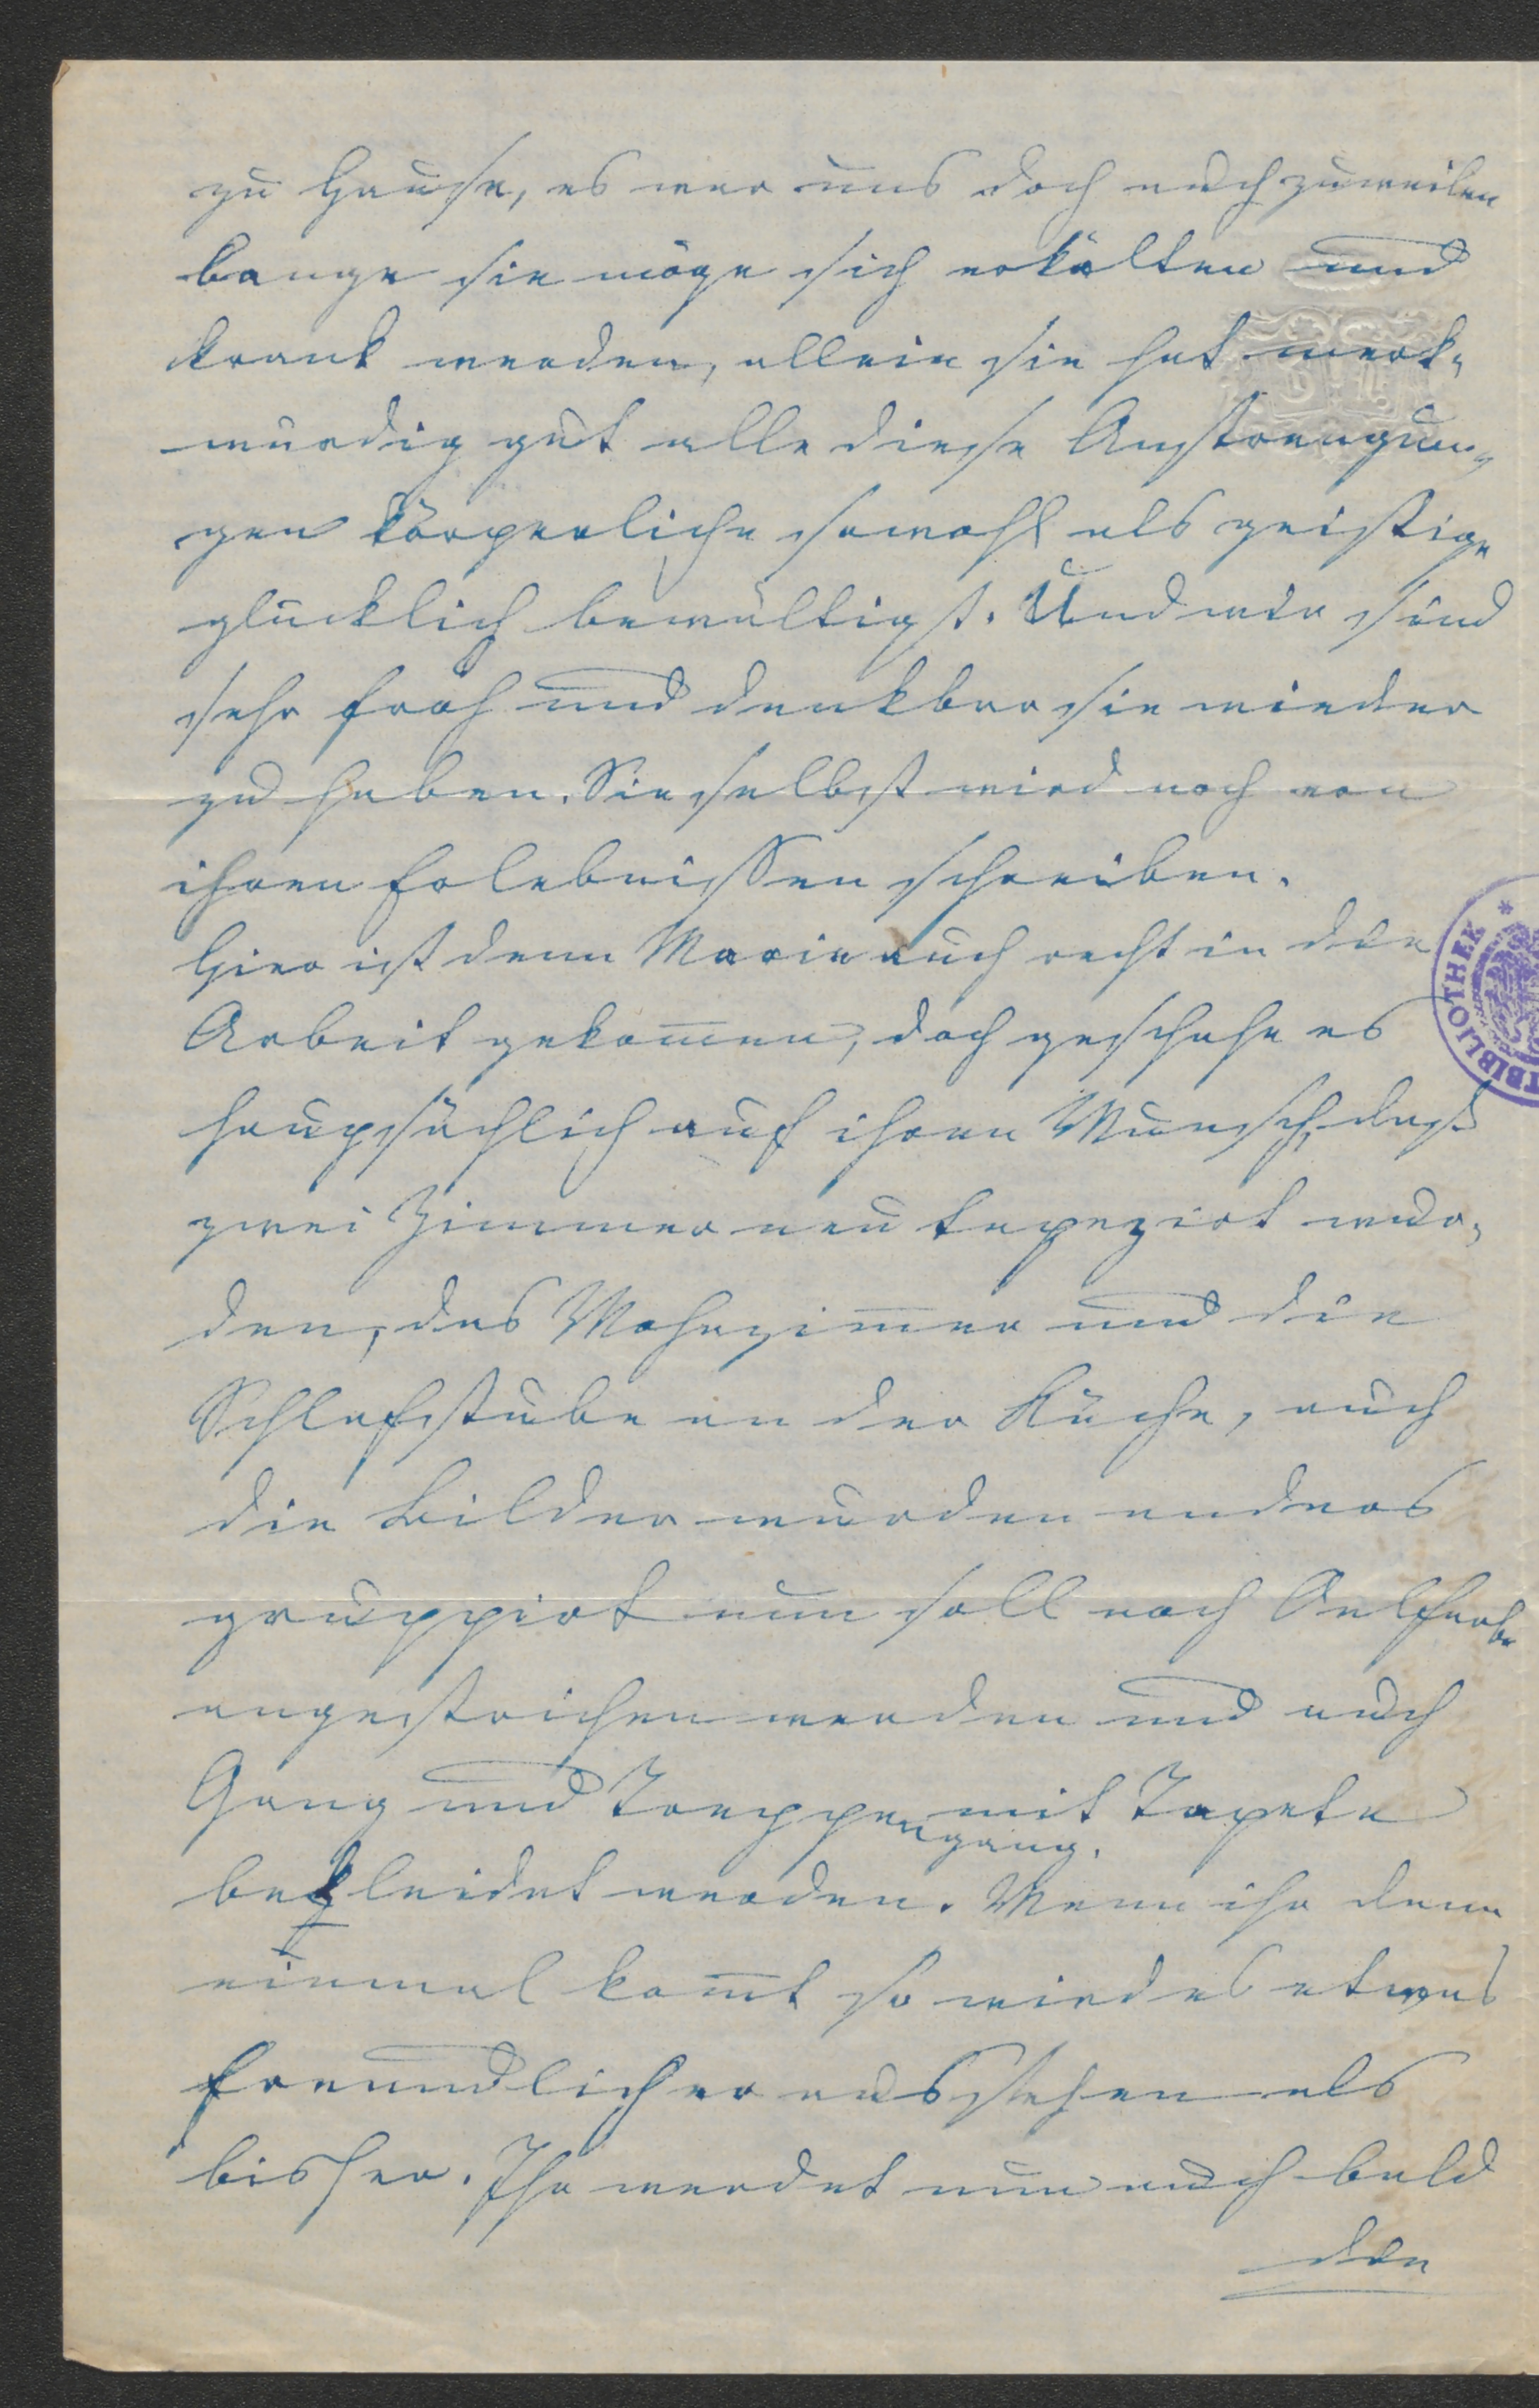 zu Hause, es war uns doch auch zuweilen
bange sie möge sich erkälten und
krank werden, allein sie hat merk-
würdig gut alle diese Anstrengun-
gen körperliche sowohl als geistige
glücklich bewältigt. Und wir sind
sehr froh und dankbar sie wieder
zu haben. Sie selbst wird noch von
ihren Erlebnissen schreiben.
Hier ist denn Marie auch recht in die
Arbeit gekommen, doch geschahe es
haupsächlich auf ihren Wunsch, daß
zwei Zimmer neu tapezirt wur-
den, das Wohnzimmer und die
Schlafstube an der Küche, auch
die Bilder wurden anders
gruppirt nun soll noch Oelfarbe
angestrichen werden und auch
Gang und Treppengang mit Tapete
bekleidet werden. Wenn ihr dann
einmal kommt so wird es etwas
freundlicher aussehen als
bisher. Ihr werdet nun auch bald
die
BIBLIOTHEK